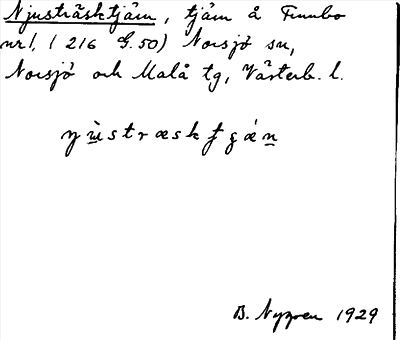 Njusträsktjärn, tjärn å Finnbo
nr 1, (216 G.50) Norsjö sn,
Norsjö och Malå tg, Västerb. l.
B. Nygren 1929